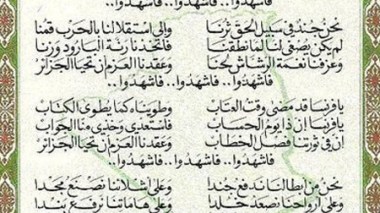 فاشهدوا.. فاشهدوا.. فاشهدوا..
نحن جند في سبيل الحق ثرنا وإلى استقلالنا بالحرب قمنا
لم يكن يصغى لنا لما نطقنا فاتخذنا رنة البارود وزنا
وعزفنا نغمة الرشاش لحنا وعقدنا العزم أن تحيا الجزائر
فاشهدوا.. فاشهدوا.. فاشهدوا..
يا فرنسا قد مضى وقت العتاب وطويناه كما يطوى الكتاب
يا فرنسا إن ذا يوم الحساب فاستعدي وخذي منا الجواب
إن في ثورتنا فصل الخطاب وعقدنا العزم أن تحيا الجزائر
فاشهدوا.. فاشهدوا.. فاشهدوا..
نحن من أبطالنا ندفع جندا وعلى أشلائنا نصنع مجدا
وعلى أرواحنا نصعد خلدا وعلى هاماتنا نرفع بندا